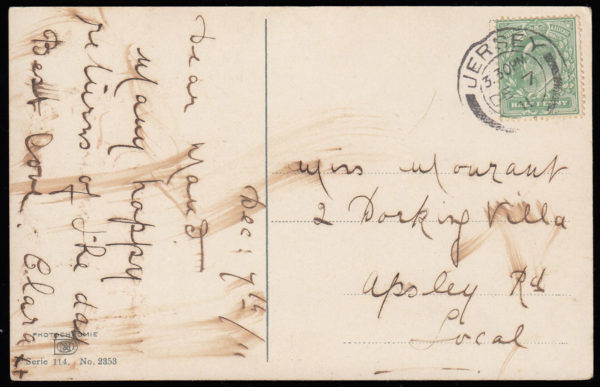 Dec: 7th
Dear Maud
Many happy
returns of the day
Best love. Clara
JERSEY
3.30PM
7
HALFPENNY
Miss Mourant
2 Dorking Villa
Apsley Rd
Local
PHOTOCHROMIE
Serie 114. No. 2353